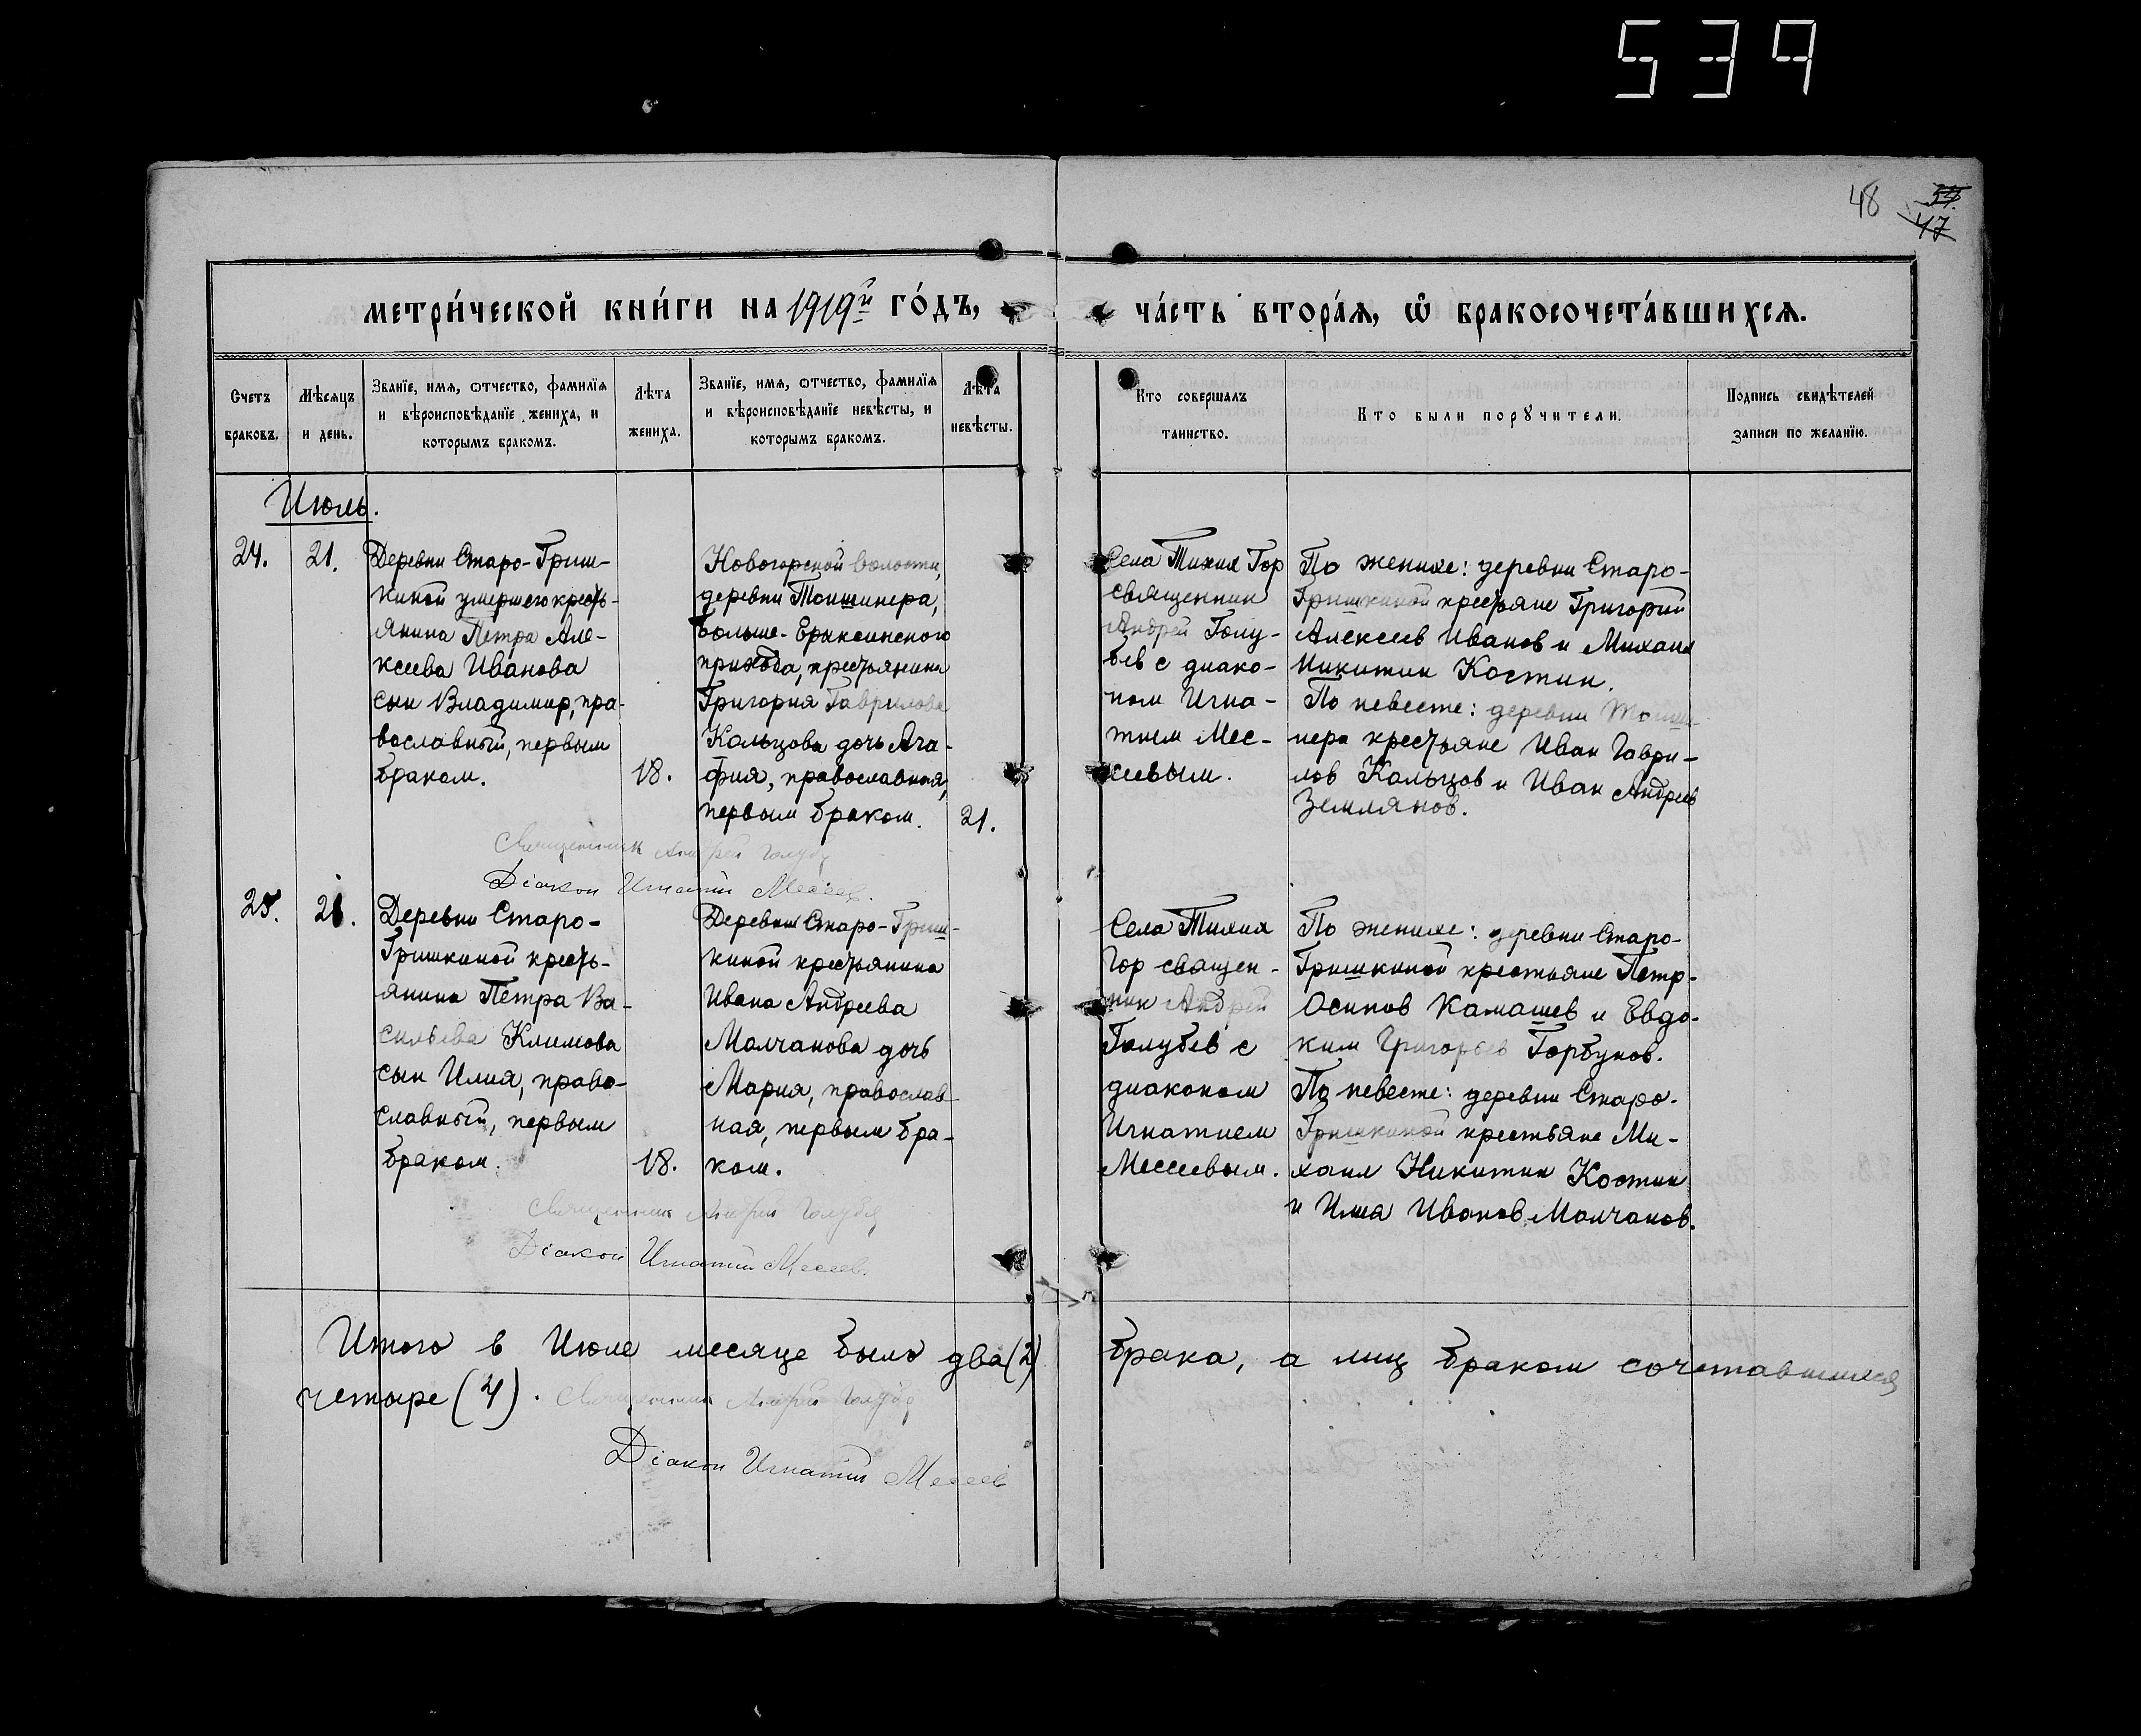 539
48
54.
47
МЕТРИ́ЧЕСКОЙ КНИ́ГИ НА 1919й ГО́ДЪ,
ЧА́СТЬ ВТОРА́Я, Ѡ҆ БРАКОСОЧЕТА́ВШИХСЯ.
Счетъ браковъ.
Мѣсяцъ и день.
Званїе, имя, ѿчество, фамилїя
и вѣроисповѣданїе жениха, и
которымъ бракомъ.
Лѣта
жениха.
Званїе, имя, ѿчество, фамилїя
и вѣроисповѣданїе невѣсты, и
которымъ бракомъ.
Лѣта
невѣсты.
Кто совершалъ
таинство.
Кто были порꙋчители.
Подпись свидѣтелей
записи по желанїю.
Июль.
24.
21.
Деревни Старо-Гриш-
киной умершего кресть-
янина Петра Але-
ксеева Иванова
сын Владимир, пра-
вославный, первым
браком.
18.
Новогорской волости,
деревни Тоншинера,
Больше-Ерыксинского
прихода, крестьянина
Григория Гаврилова
Кольцова дочь Ага-
фия, православная,
первым браком.
21.
Села Тихия Гор
священник
Андрей Голу-
бев с диако-
ном Игна-
тием Мес-
сеевым.
По женихе: деревни Старо-
Гришкиной крестьяне Григорий
Алексеев Иванов и Михаил
Никитин Костин.
По невесте: деревни Тонши-
нера крестьяне Иван Гаври-
лов Кольцов и Иван Андреев
Землянов.
Священник Андрей Голубев
Дiакон Игнатий Мессеев.
25.
21.
Деревни Старо-
Гришкиной кресть-
янина Петра Ва-
сильева Климова
сын Илия, право-
славный, первым
браком.
18.
Деревни Старо-Гриш-
киной крестьянина
Ивана Андреева
Молчанова дочь
Мария, православ-
ная, первым бра-
ком.
Села Тихия
Гор священ-
ник Андрей
Голубев с
диаконом
Игнатием
Мессеевым.
По женихе: деревни Старо-
Гришкиной крестьяне Петр
Осипов Камашев и Евдо-
ким Григорьев Горбунов.
По невесте: деревни Старо-
Гришкиной крестьяне Ми-
хаил Никитин Костин
и Илия Иванов Молчанов.
Священник Андрей Голубев
Дiакон Игнатий Мессеев.
Итого в Июле месяце было два (2) брака, а лиц браком сочетавшихся
четыре (4). Священник Андрей Голубев
Дiакон Игнатий Мессеев